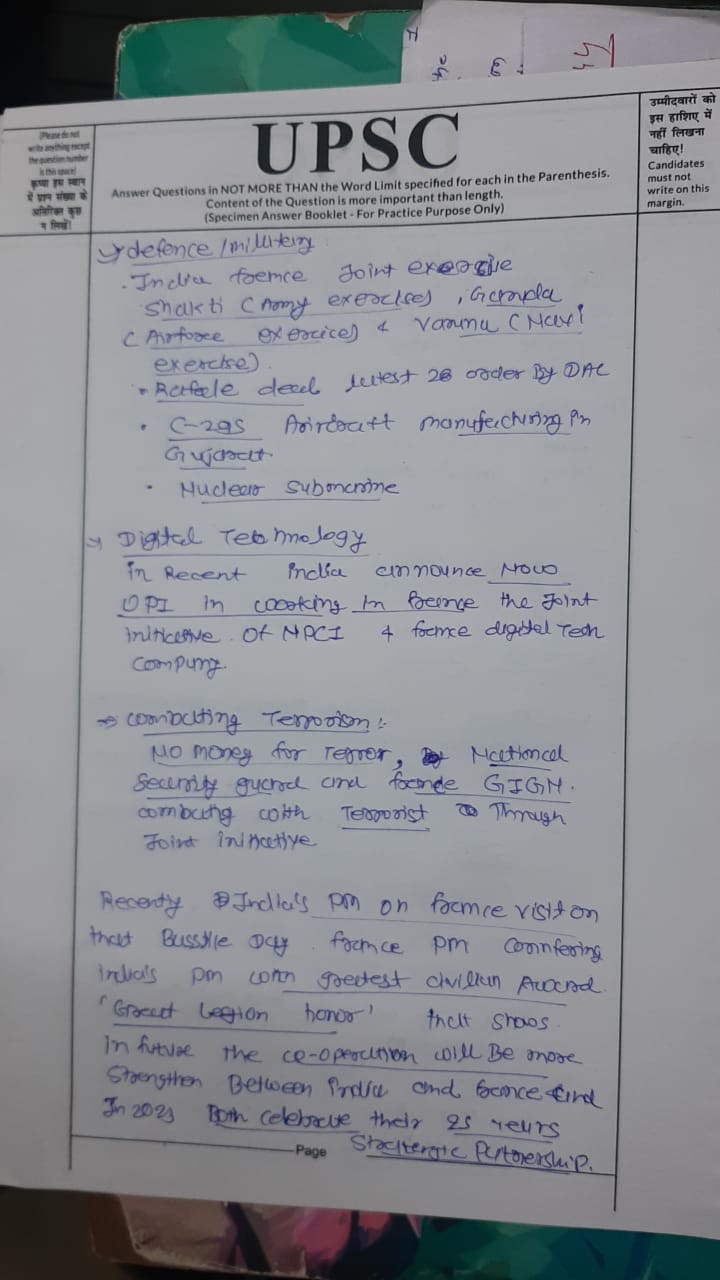 (Please do not
write anything except
the question number
is this space)
कृप्या इस स्थान
में प्रश्न संख्या के
अतिरिक्त कुछ
न लिखें!
UPSC
Answer Questions in NOT MORE THAN the Word Limit specified for each in the Parenthesis.
Content of the Question is more important than length.
(Specimen Answer Booklet - For Practice Purpose Only)
उम्मीदवारों को
इस हाशिए में
नहीं लिखना
चाहिए!
Candidates
must not
write on this
margin.
defence /military
. India france Joint exercise
Shakti (Army exercises), Garuda
(Airforce exercices) & Varuna (Navy
exercise).
• Rafeele deal latest 26 order By DAC
• C-295 Aircraft manufacturing in
Gujarat
• Nuclear Submarine
Digital Technology
in Recent India announce Now
UPI in working in France the Joint
initiative of NPCI & france digital Tech
Company.
→ combating Terrorism:-
No money for Terror, National
Security guard and france GIGN.
combating with Terrorist Through
Joint initiative
Recently India's PM on france visit on
that Busstile Day. france PM conferring
India's pm with greatest civilian Award.
'Great Legion honor' that shows
in future the co-operation will Be more
Strengthen Between India and france and
In 2023 Both celebrate their 25 years
Stratergic Partnership.
Page